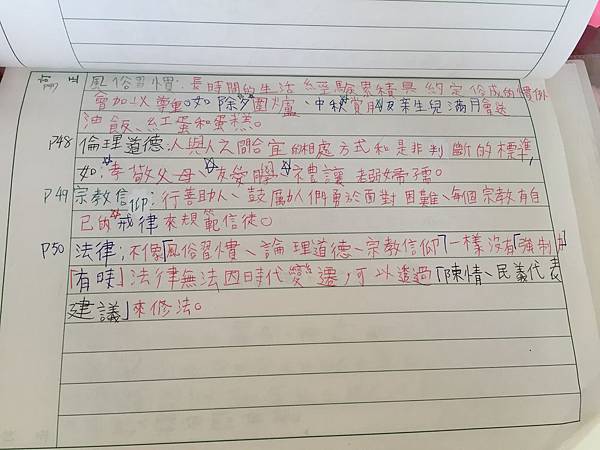 訂正 風俗習慣:長時間的生活經驗累積與約定俗成的慣例
會加以尊重。如除夕圍爐、中秋賞月及某生兒滿月會送
油飯、紅蛋和蛋糕。
P48 倫理道德:人與人之間合宜的相處方式和是非判斷的標準,
如:孝敬父母、友愛關、禮讓老弱婦孺。
P49 宗教信仰:行善助人、鼓勵人們勇於面對困難、每個宗教有自
己的戒律來規範信徒。
P50 法律:不像「風俗習慣、論理道德、宗教信仰」一樣沒有「強制力」
「有時」法律無法因時代變遷,可以透過「陳情、民義代表
建議」來修法。